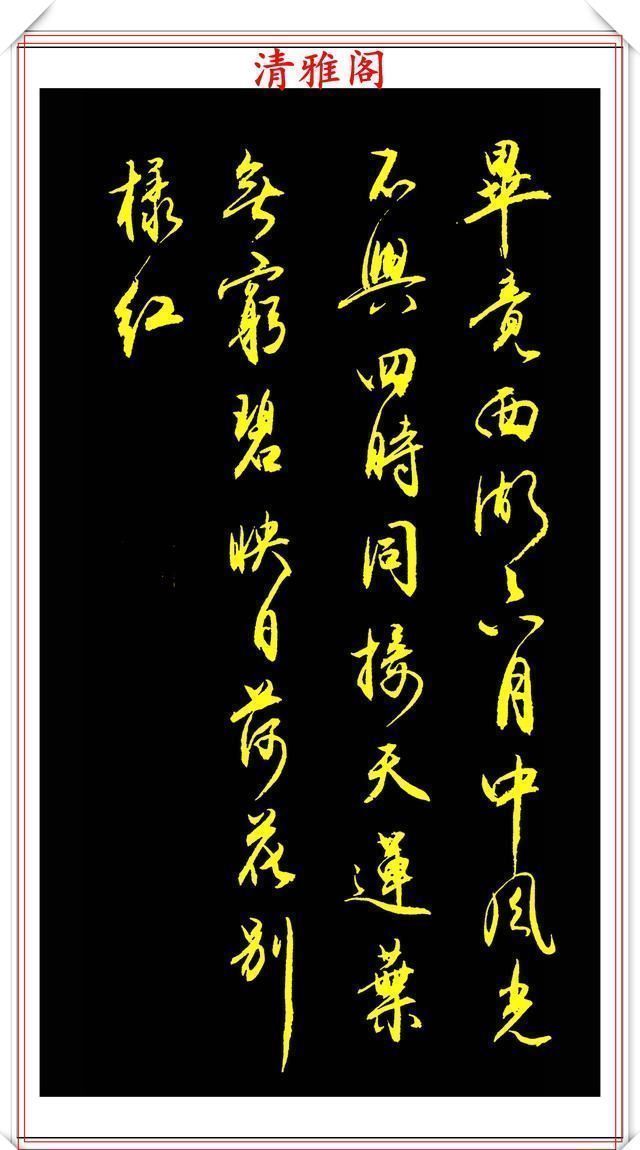 清雅阁
畢竟西湖六月中風光
不與四時同接天蓮葉
無窮碧映日荷花别
樣红